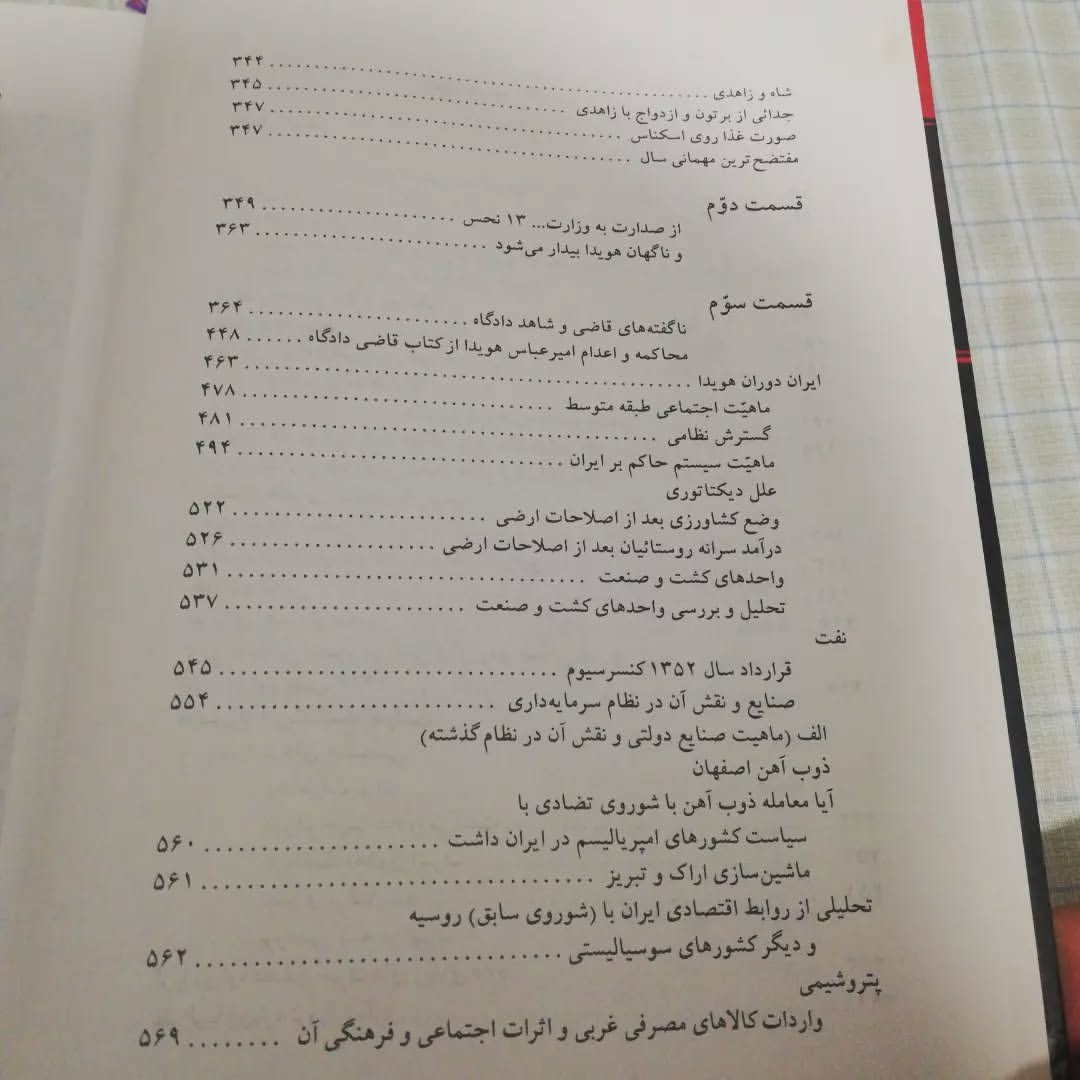 شاه و زاهدی ........ ۳۴۴
جدائی از برتون و ازدواج با زاهدی ........ ۳۴۵
صورت غذا روی اسکناس ........ ۳۴۷
مفتضح‌ترین مهمانی سال ........ ۳۴۷
قسمت دوّم
از صدارت به وزارت... ۱۳ نحس ........ ۳۴۹
و ناگهان هویدا بیدار می‌شود ........ ۳۶۳
قسمت سوّم
ناگفته‌های قاضی و شاهد دادگاه ........ ۳۶۴
محاکمه و اعدام امیرعباس هویدا از کتاب قاضی دادگاه ...... ۴۴۸
ایران دوران هویدا ........ ۴۶۳
ماهیّت اجتماعی طبقه متوسط ........ ۴۷۸
گسترش نظامی ........ ۴۸۱
ماهیّت سیستم حاکم بر ایران ........ ۴۹۴
علل دیکتاتوری
وضع کشاورزی بعد از اصلاحات ارضی ........ ۵۲۲
درآمد سرانه روستائیان بعد از اصلاحات ارضی ........ ۵۲۶
واحدهای کشت و صنعت ........ ۵۳۱
تحلیل و بررسی واحدهای کشت و صنعت ........ ۵۳۷
نفت
قرارداد سال ۱۳۵۲ کنسرسیوم ........ ۵۴۵
صنایع و نقش آن در نظام سرمایه‌داری ........ ۵۵۴
الف (ماهیت صنایع دولتی و نقش آن در نظام گذشته)
ذوب آهن اصفهان
آیا معامله ذوب آهن با شوروی تضادی با
سیاست کشورهای امپریالیسم در ایران داشت ........ ۵۶۰
ماشین‌سازی اراک و تبریز ........ ۵۶۱
تحلیلی از روابط اقتصادی ایران با (شوروی سابق) روسیه
و دیگر کشورهای سوسیالیستی ........ ۵۶۲
پتروشیمی
واردات کالاهای مصرفی غربی و اثرات اجتماعی و فرهنگی آن ........ ۵۶۹